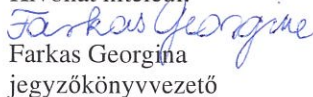 Farkas Georgine
Farkas Georgina
jegyzőkönyvvezető